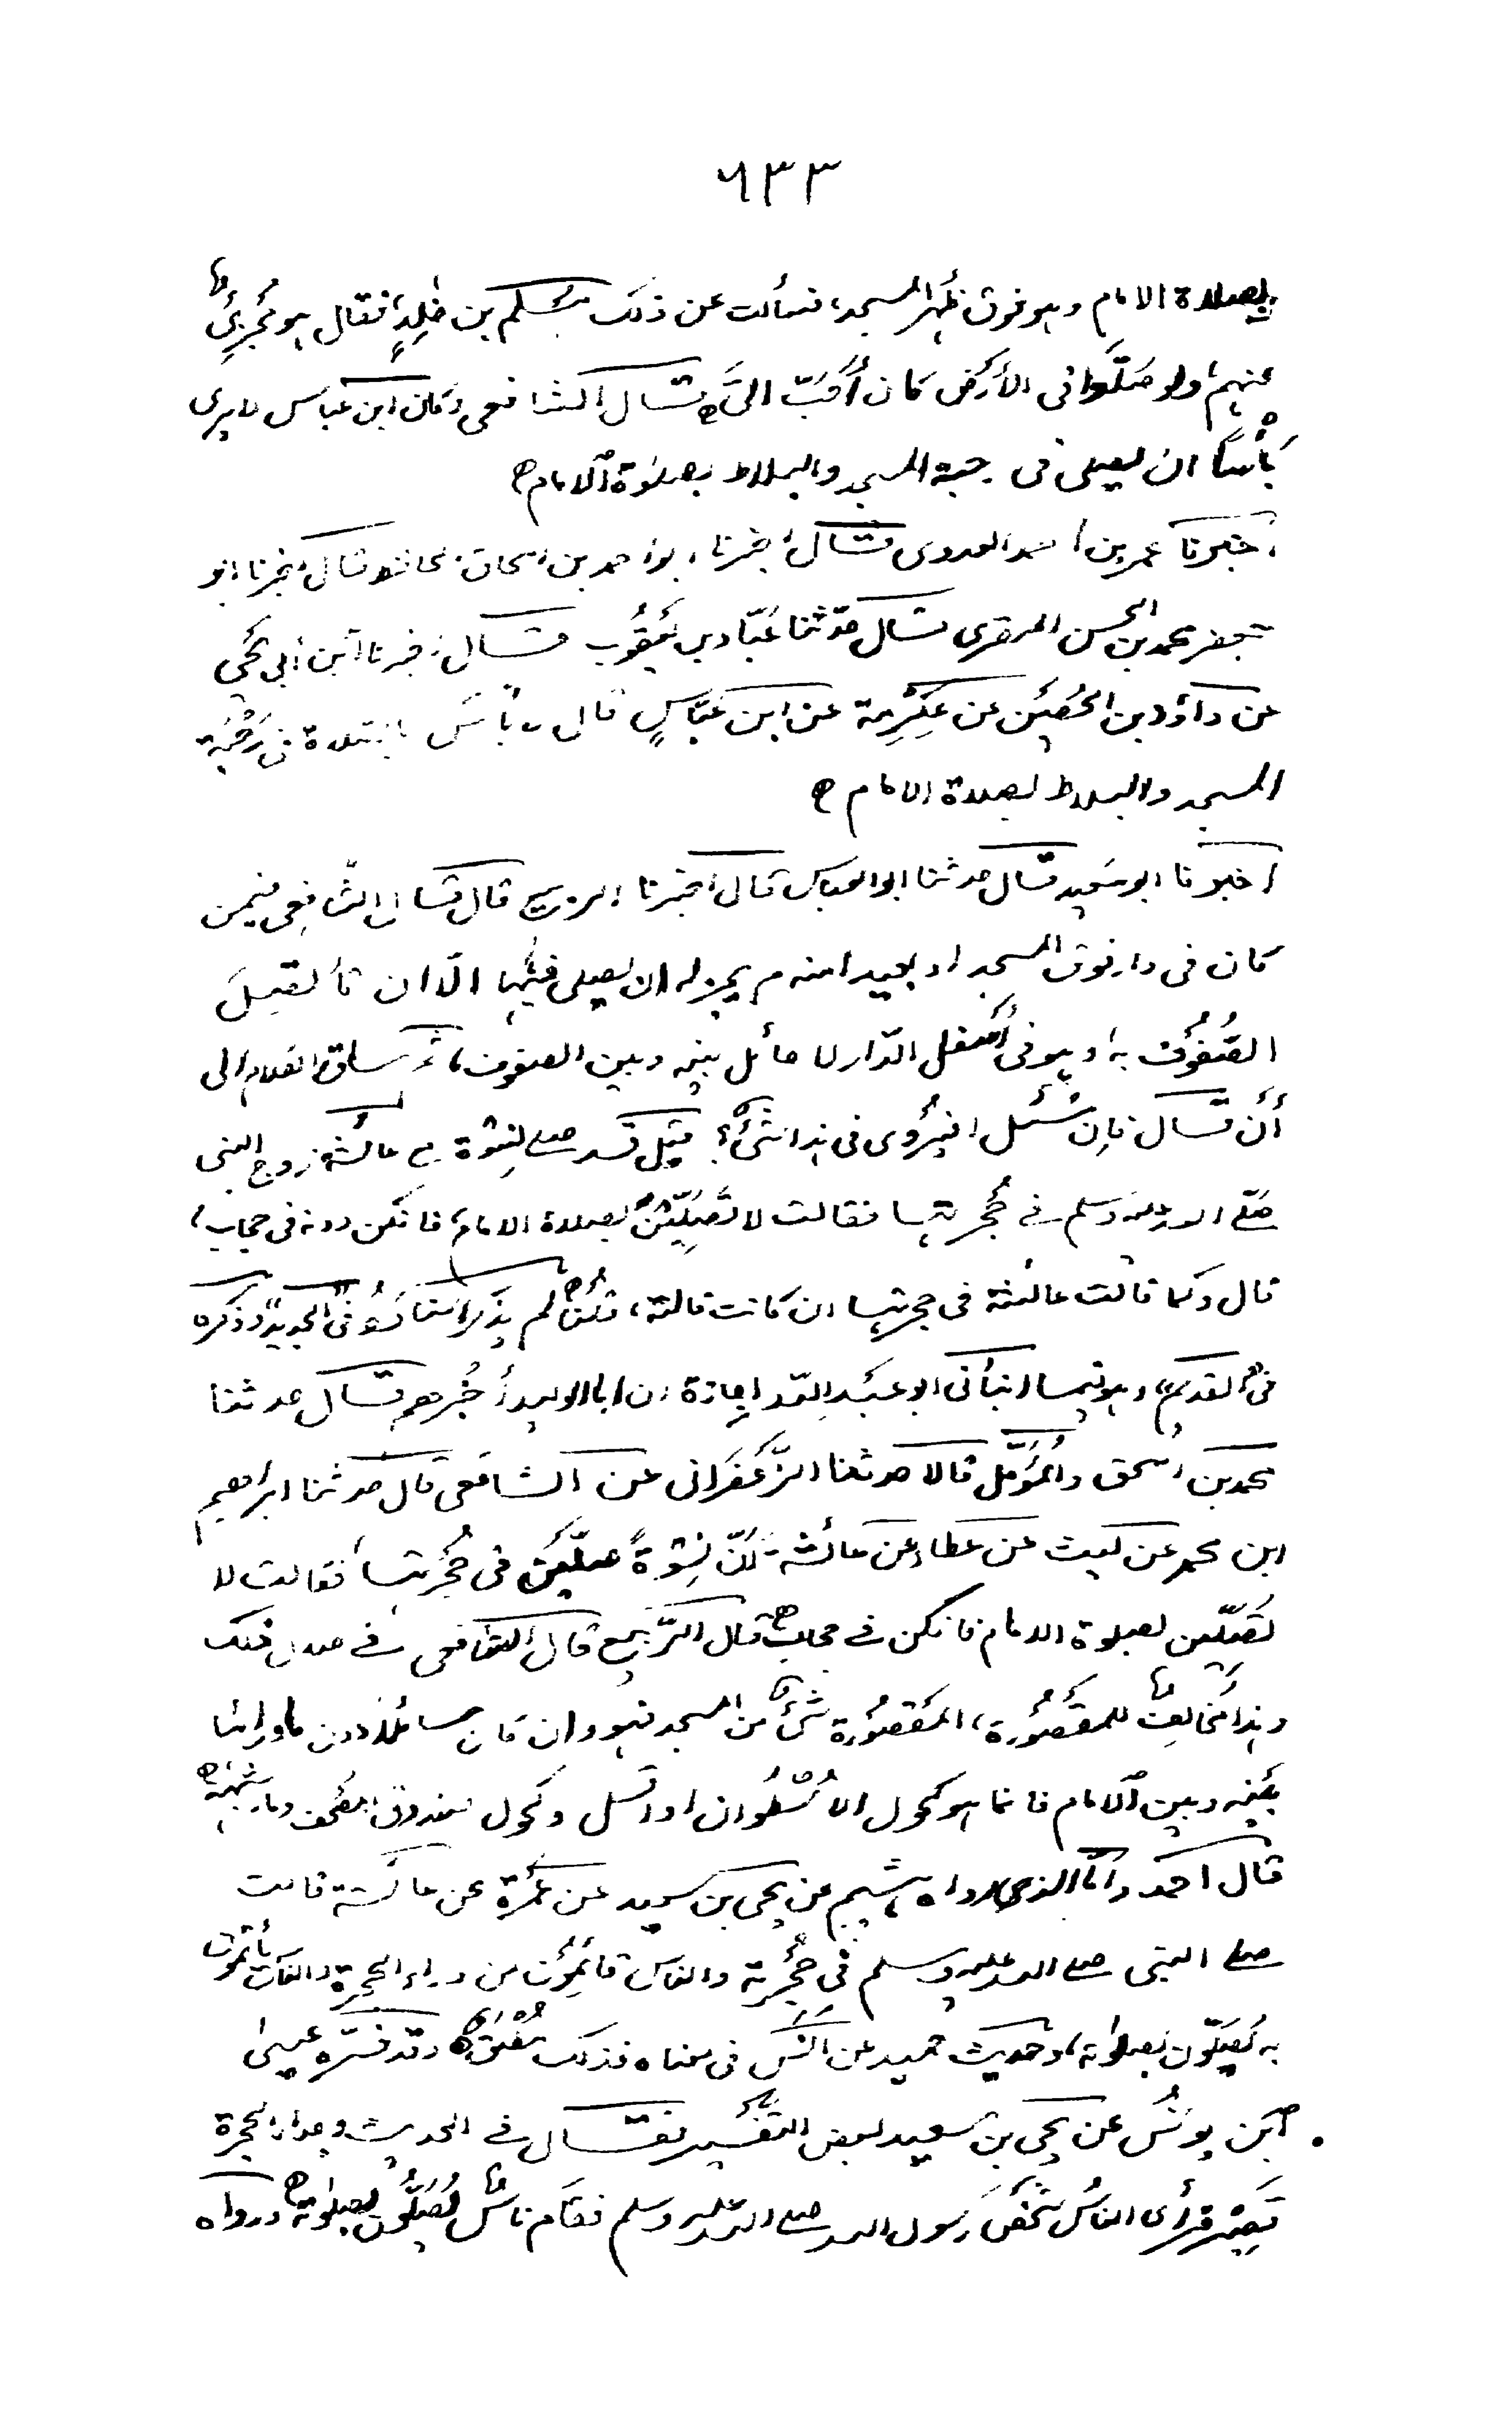 ٦٣٣
بصلاة الامام وهو فوق ظهر المسجد، فسألت عن ذلك مسلم بن خالد فقال هو مُجزئٌ
عنهم، ولو صَلَّوا فى الأرض كان أحَبَّ الىَّ قال الشافعى وكان ابن عباس لا يرى
بأسًا ان يصلى فى رحبة المسجد والبلاط بصلوٰة الامام
اخبرنا عمر بن احمد العبدوى قال اخبرنا ابو احمد بن اسحاق الحافظ قال اخبرنا ابو
جعفر محمد بن الحسن المقرى قال حدّثنا عَبّاد بن يَعقُوب قال اخبرنا ابن ابى يحيٰى
عن داؤد بن الحُصَين عن عِكرِمة عن ابن عَبّاسٍ قال لا بأسَ بالصلاة فى رَحْبَة
المسجد والبلاط بصلاة الامام
اخبرنا ابو سَعِيد قال حدثنا ابو العباس قال اخبرنا الربيع قال قال الشّافِعى فيمن
كان فى دار فوق المسجد او بعيدا منه لم يجز له ان يصلى فيها الّا ان تتصِلَ
الصُفُوف به او يهو فى أسفل الدّار لا حائل بينه وبين الصفوف، ثم ساق الكلام الى
أن قال فإن سُئل ايُروى فى هذا شئٌ؟ قيل قد صلى نِسْوة مع عائشة زوج النبى
صلى الله عليه وسلم فى حُجرتها فقالت لا تُصَلِّينَ بصلاة الامام فانكن دونه فى حجاب،
قال وكما قالت عائشة فى حجرتها ان كانت قالته، قلتُ لم يذكر اسنادَهُ فى "الجديد" وذكره
فى "القديم" وهو فيما انبأنى ابو عَبد الله اجازة ان ابا الوليد أخبرهم قال حدثنا
محمد بن اسحٰق والمُؤمَّل قالا حدثنا الزّعْفَرانى عن الشافعى قال حدثنا ابراهيم
ابن محمد عن ليث عن عطاء عن عائشة أنّ نِسْوةً صلّين فى حُجْرتها فقالت لا
تُصَلِّين بصلوة الامام فانكن فى حجاب قال الرَّبيع قال الشافعى فى
وهذا مُخالِفٌ للمقصُورة، المقصُورة شئٌ من المسجد فهو وان كان حائلا دون ما وراءها
بَينه وبين الامام فانما هو كحول الاُسْطُوان او اقل وكحول صندوق المُصحَف وما يشبهه
قال احمد واما الذى رواه هشيم عن يحيى بن سعيد عن عَمْرة عن عائشة قالت
صلى النبى صلى الله عليه وسلم فى حُجْرته والناس قائمُون من وراء الحجرة والناس يأتمّون
به يُصلّون بصلوٰته، وحديث حميد عن انَس فى معناه فذلك مُطْلَق وقد فسّره عيسٰى
ابن يونُس عن يحيى بن سعيد بعض التفسير فقال فى الحديث وجدار الحجرة
قصير فرأى الناسُ شَخْصَ رسول الله صلى الله عليه وسلم فقام ناسٌ يُصَلُّون بصلوٰته ورواه